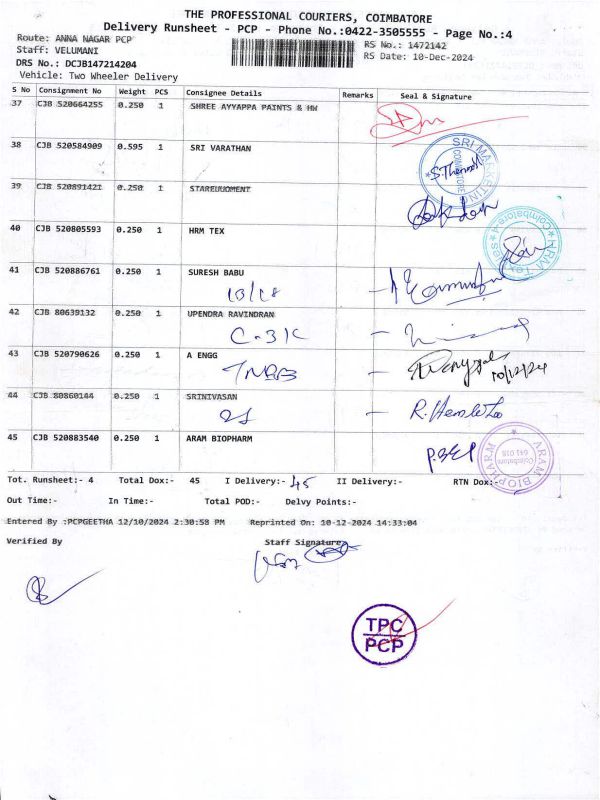 THE PROFESSIONAL COURIERS, COIMBATORE
Delivery Runsheet - PCP - Phone No.:0422-3505555 - Page No.:4
Route: ANNA NAGAR PCP
RS No.: 1472142
Staff: VELUMANI
RS Date: 10-Dec-2024
DRS No.: DCJB147214204
Vehicle: Two Wheeler Delivery
S No Consignment No Weight PCS Consignee Details Remarks Seal & Signature
37 CJB 520664255 0.250 1 SHREE AYYAPPA PAINTS & HW
38 CJB 520584909 0.595 1 SRI VARATHAN
SRI MARKETING COIMBATORE
39 CJB 520891421 0.250 1 STAREUUOMENT
40 CJB 520805593 0.250 1 HRM TEX
HRM Textiles * Coimbatore-4 *
41 CJB 520886761 0.250 1 SURESH BABU
42 CJB 80639132 0.250 1 UPENDRA RAVINDRAN
43 CJB 520790626 0.250 1 A ENGG
TNBB
10/12/24
44 CJB 80860144 0.250 1 SRINIVASAN
45 CJB 520883540 0.250 1 ARAM BIOPHARM
ARAM BIOPHARM Coimbatore 641 018
Tot. Runsheet:- 4 Total Dox:- 45 I Delivery:- 45 II Delivery:- RTN Dox:-
Out Time:- In Time:- Total POD:- Delvy Points:-
Entered By :PCPGEETHA 12/10/2024 2:30:58 PM Reprinted On: 10-12-2024 14:33:04
Verified By Staff Signature
TPC
PCP